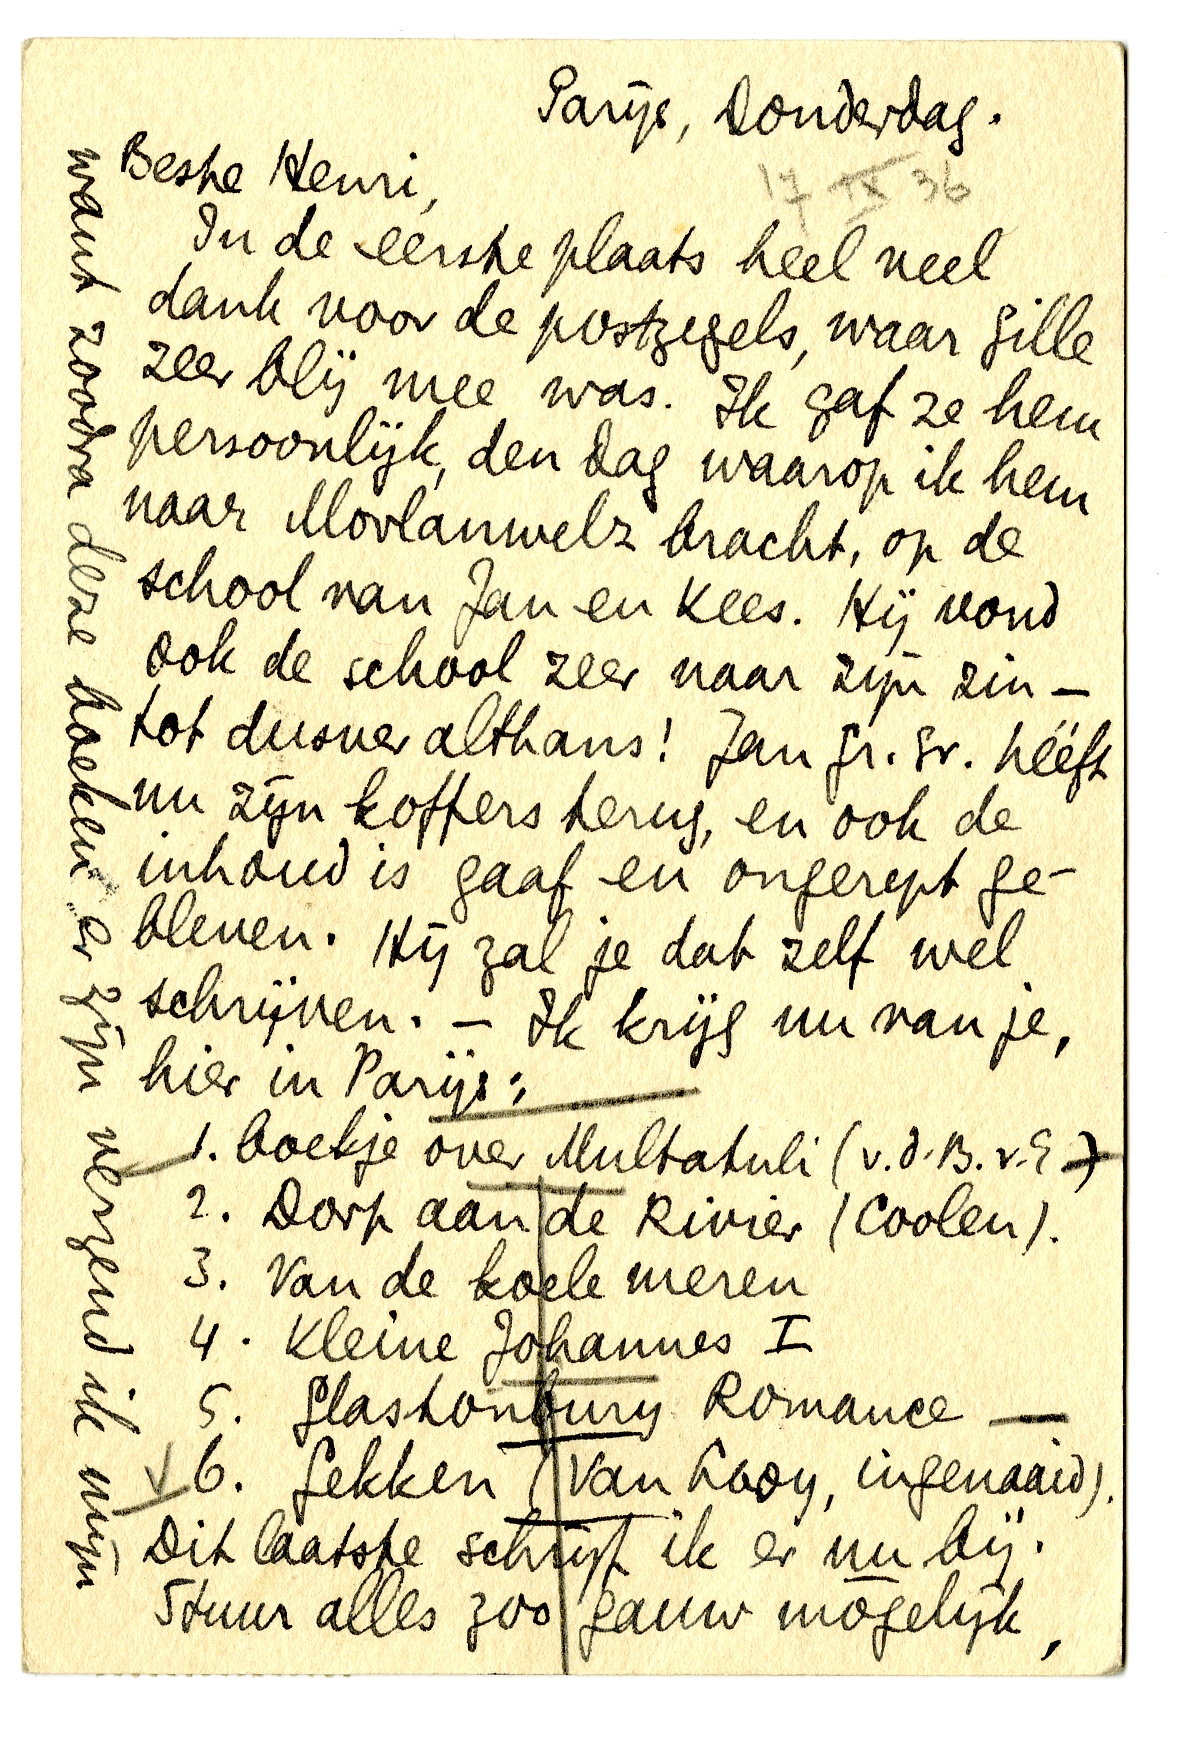 Parijs, Donderdag.
17 IX 36
Beste Henri,
In de eerste plaats heel veel
dank voor de postzegels, waar Gille
zeer blij mee was. Ik gaf ze hem
persoonlijk, den dag waarop ik hem
naar Morlanwelz bracht, op de
school van Jan en Kees. Hij vond
ook de school zeer naar zijn zin –
tot dusver althans! Jan Gr. Gr. hééft
nu zijn koffers terug, en ook de
inhoud is gaaf en ongerept ge-
bleven. Hij zal je dat zelf wel
schrijven. – Ik krijg nu van je,
hier in Parijs:
1. boekje over Multatuli (v.d.B. v.E)
2. Dorp aan de Rivier (Coolen).
3. Van de koele meren
4. Kleine Johannes I
5. Glastonbury Romance —
6. Gekken (Van Looy, ingenaaid).
Dit laatste schrijf ik er nu bij.
Stuur alles zoo gauw mogelijk,
want zoodra deze boeken er zijn verzend ik mijn